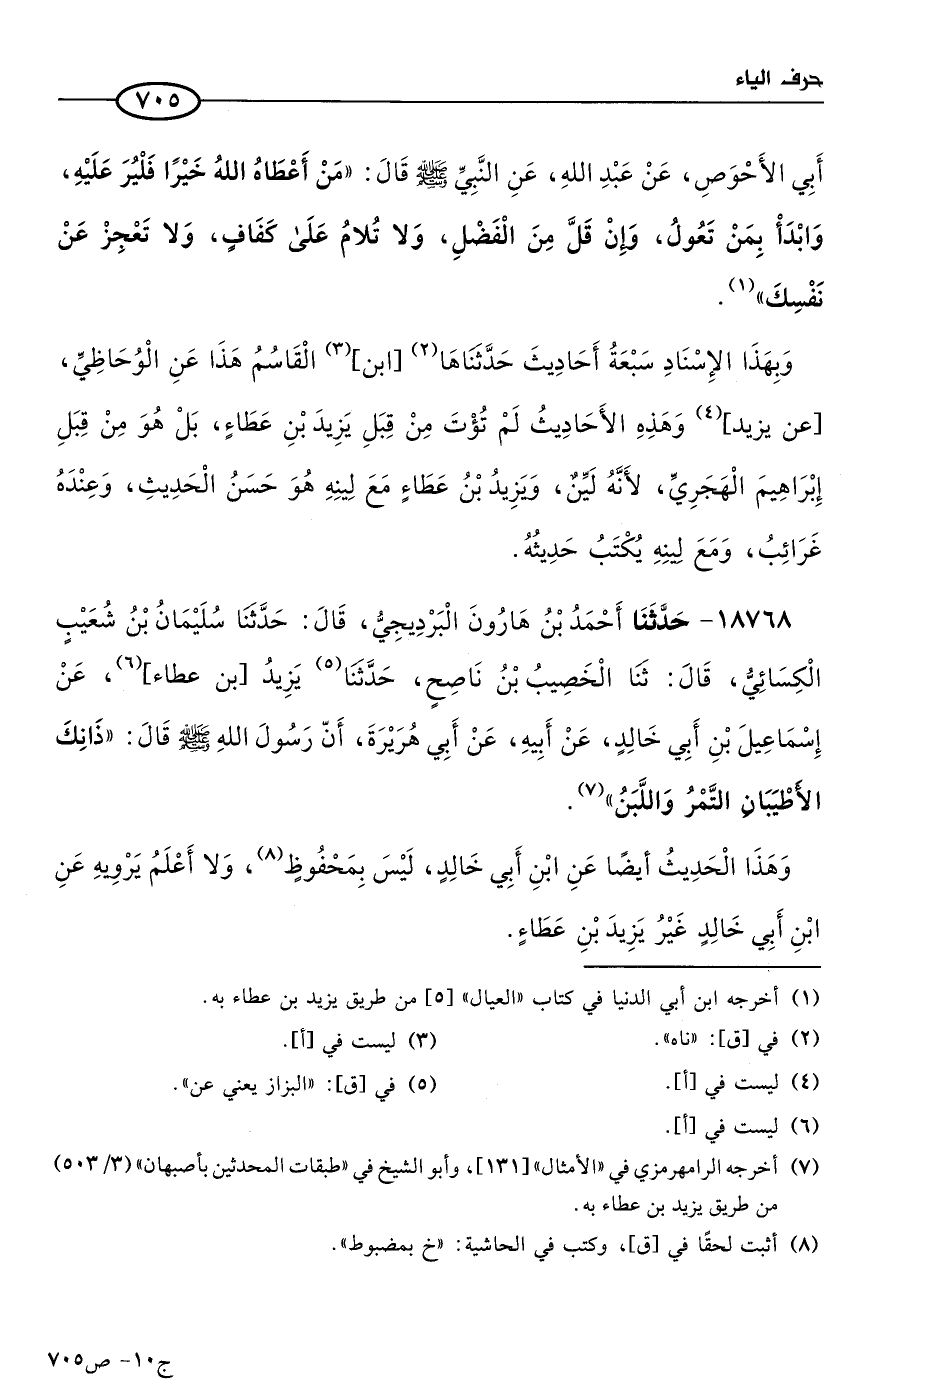 حرف الياء
٧٠٥
أَبِي الأَحْوَصِ، عَنْ عَبْدِ اللهِ، عَنِ النَّبِيِّ ﷺ قَالَ: «مَنْ أَعْطَاهُ اللهُ خَيْرًا فَلْيُرَ عَلَيْهِ،
وَابْدَأْ بِمَنْ تَعُولُ، وَإِنْ قَلَّ مِنَ الْفَضْلِ، وَلا تُلامُ عَلَىٰ كَفَافٍ، وَلا تَعْجِزْ عَنْ
نَفْسِكَ»(١).
وَبِهَذَا الإِسْنَادِ سَبْعَةُ أَحَادِيثَ حَدَّثَنَاهَا(٢) [ابن](٣) الْقَاسُمُ هَذَا عَنِ الْوُحَاظِيِّ،
[عن يزيد](٤) وَهَذِهِ الأَحَادِيثُ لَمْ تُؤْتَ مِنْ قِبَلِ يَزِيدَ بْنِ عَطَاءٍ، بَلْ هُوَ مِنْ قِبَلِ
إِبْرَاهِيمَ الْهَجَرِيِّ، لأَنَّهُ لَيِّنٌ، وَيَزِيدُ بْنُ عَطَاءٍ مَعَ لِينِهِ هُوَ حَسَنُ الْحَدِيثِ، وَعِنْدَهُ
غَرَائِبُ، وَمَعَ لِينِهِ يُكْتَبُ حَدِيثُهُ.
١٨٧٦٨- حَدَّثَنَا أَحْمَدُ بْنُ هَارُونَ الْبَرْدِيجِيُّ، قَالَ: حَدَّثَنَا سُلَيْمَانُ بْنُ شُعَيْبٍ
الْكِسَائِيُّ، قَالَ: ثَنَا الْخَصِيبُ بْنُ نَاصِحٍ، حَدَّثَنَا(٥) يَزِيدُ [بن عطاء](٦)، عَنْ
إِسْمَاعِيلَ بْنِ أَبِي خَالِدٍ، عَنْ أَبِيهِ، عَنْ أَبِي هُرَيْرَةَ، أَنّ رَسُولَ اللهِ ﷺ قَالَ: «ذَانِكَ
الأَطْيَبَانِ التَّمْرُ وَاللَّبَنُ»(٧).
وَهَذَا الْحَدِيثُ أيضًا عَنِ ابْنِ أَبِي خَالِدٍ، لَيْسَ بِمَحْفُوظٍ(٨)، وَلا أَعْلَمُ يَرْوِيهِ عَنِ
ابْنِ أَبِي خَالِدٍ غَيْرُ يَزِيدَ بْنِ عَطَاءٍ.
(١) أخرجه ابن أبي الدنيا في كتاب «العيال» [٥] من طريق يزيد بن عطاء به.
(٢) في [ق]: «ناه».
(٣) ليست في [أ].
(٤) ليست في [أ].
(٥) في [ق]: «البزاز يعني عن».
(٦) ليست في [أ].
(٧) أخرجه الرامهرمزي في «الأمثال» [١٣١]، وأبو الشيخ في «طبقات المحدثين بأصبهان» (٣/ ٥٠٣)
من طريق يزيد بن عطاء به.
(٨) أثبت لحقًا في [ق]، وكتب في الحاشية: «خ بمضبوط».
ج١٠- ص٧٠٥